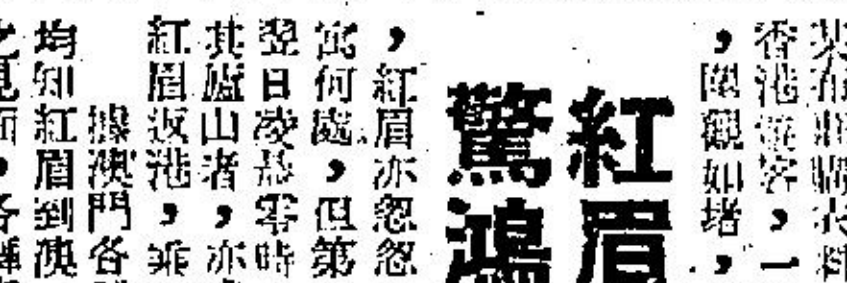 香港遊客，一
，圍觀如堵，
紅眉
驚鴻
，紅眉亦忽忽
寓何處，但第
翌日凌晨零時
其廬山者，亦
紅眉返港，乘
據澳門各
均知紅眉到澳